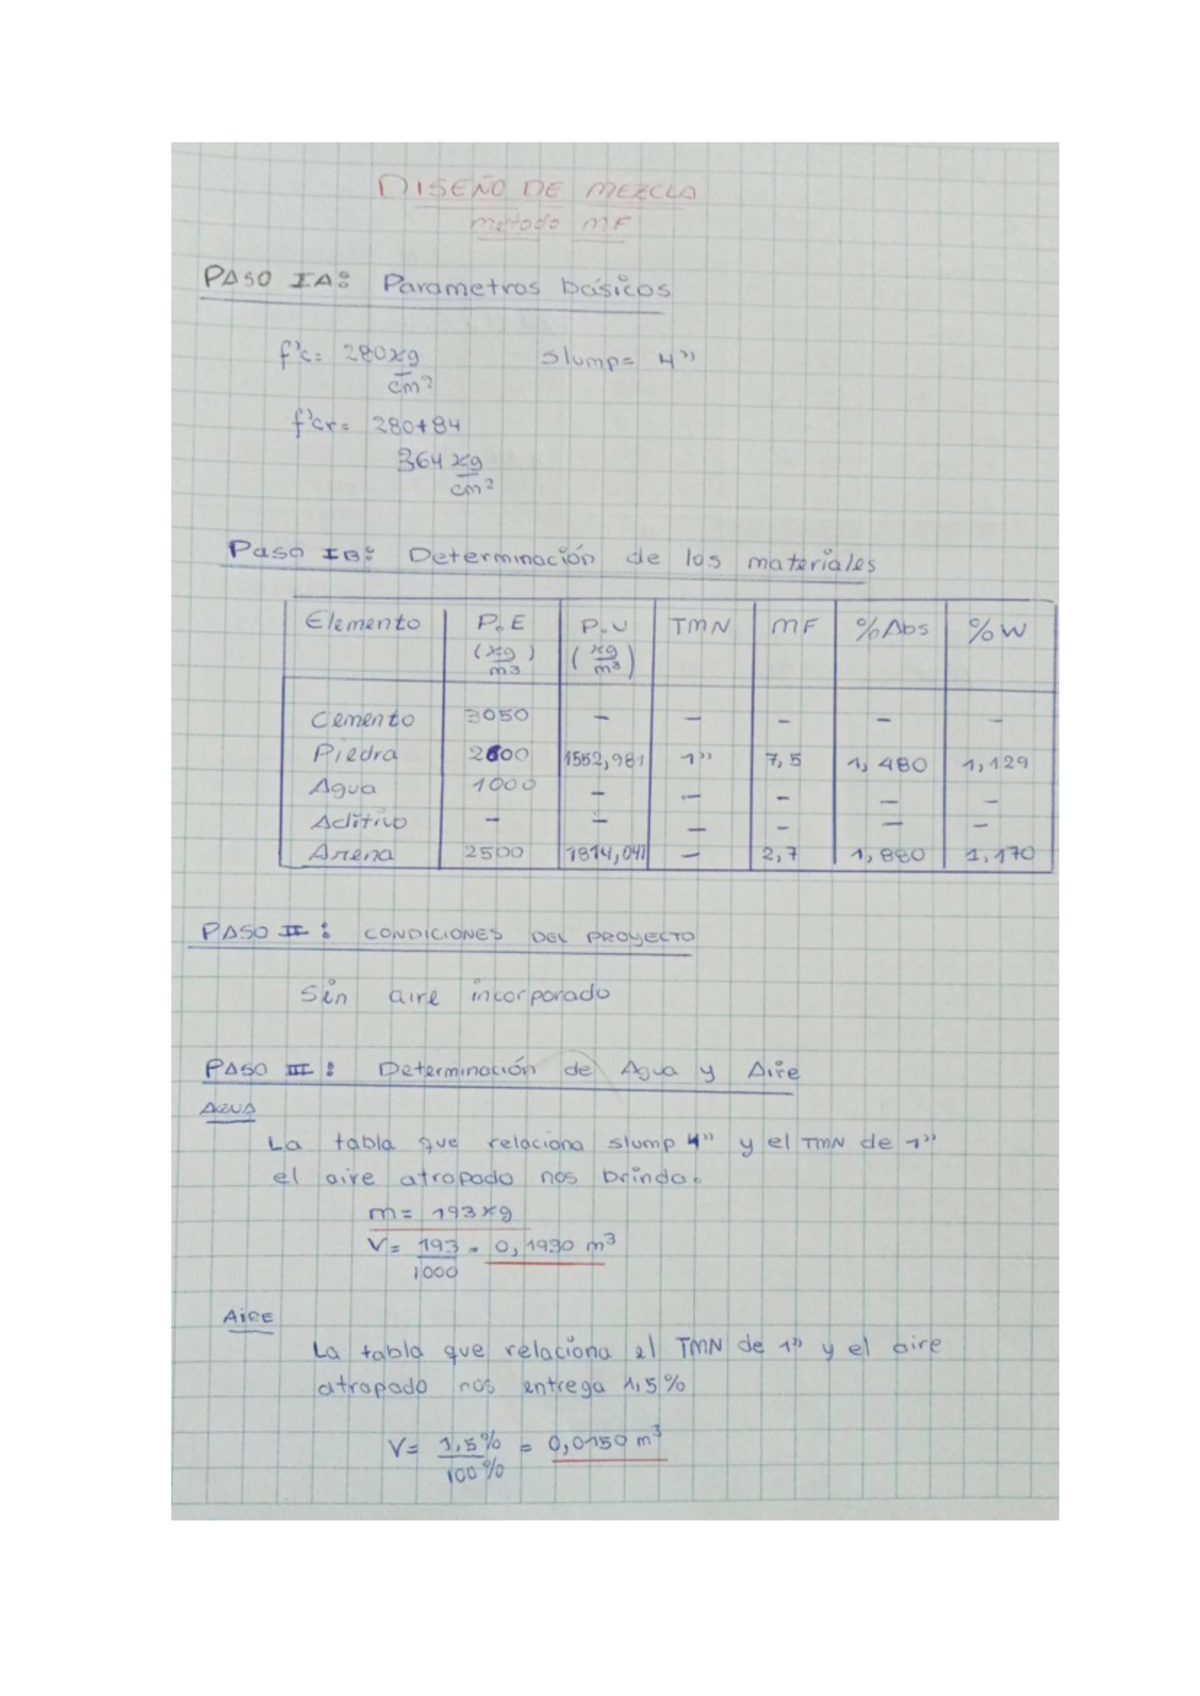 DISEÑO DE MEZCLA
metodo MF
PASO IA: Parametros básicos
f'c= 280 kg/cm² Slump= 4"
f'cr= 280+84
364 kg/cm²
Paso IB: Determinación de los materiales
Elemento P.E (kg/m³) P.U (kg/m³) TMN MF %Abs %W
Cemento 3050 - - - - -
Piedra 2600 1552,981 1" 7,5 1,480 1,129
Agua 1000 - - - - -
Aditivo - - - - - -
Arena 2500 1814,041 - 2,7 1,880 1,170
PASO II: CONDICIONES DEL PROYECTO
Sin aire incorporado
PASO III: Determinación de Agua y Aire
AGUA
La tabla que relaciona slump 4" y el TMN de 1"
el aire atropado nos brinda.
m= 193 kg
V= 193/1000 = 0,1930 m³
AIRE
La tabla que relaciona el TMN de 1" y el aire
atropado nos entrega 1,5%
V= 1,5%/100% = 0,0150 m³